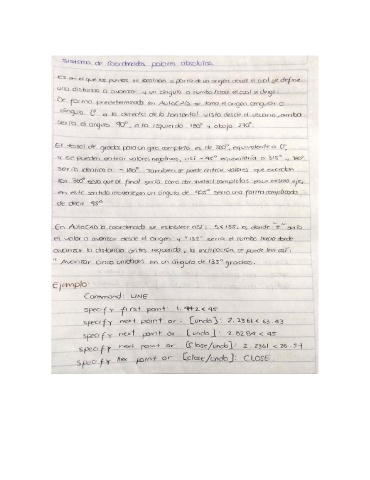 Sistema de coordenadas polares absolutas.
Es en el que los puntos se localizan a partir de un origen desde el cual se define
una distancia a avanzar y un ángulo o rumbo hacia el cual se dirige.
De forma predeterminada en AutoCAD se toma el origen como un
ángulo 0° a la derecha de la horizontal vista desde el usuario, arriba
sería el ángulo 90°, a la izquierda 180° y abajo 270°.
El total de grados para un giro completo es de 360°, equivalente a 0°,
y se pueden entrar valores negativos, así -45° equivaldría a 315° y 180°
sería idéntico a -180°. También se puede entrar valores que excedan
los 360° solo que al final sería como dar vueltas completas
en este sentido un ángulo de 405° sería una forma complicada
de decir 45°
En AutoCAD la coordenada se establece así: 5<135. es donde "5" sería
el valor a avanzar desde el origen y "135" sería el rumbo hacia donde
avanzar la distancia antes requerida, la instrucción se puede leer así:
"Avanzar cinco unidades en un ángulo de 135° grados.
Ejemplo:
Command: LINE
specify first point: 1.4142 < 45
specify next point or [undo]: 2.2361 < 63.43
specify next point or [undo]: 2.8284 < 45
specify next point or [Close/undo]: 2.2361 < 26.57
specify next point or [close/undo]: CLOSE